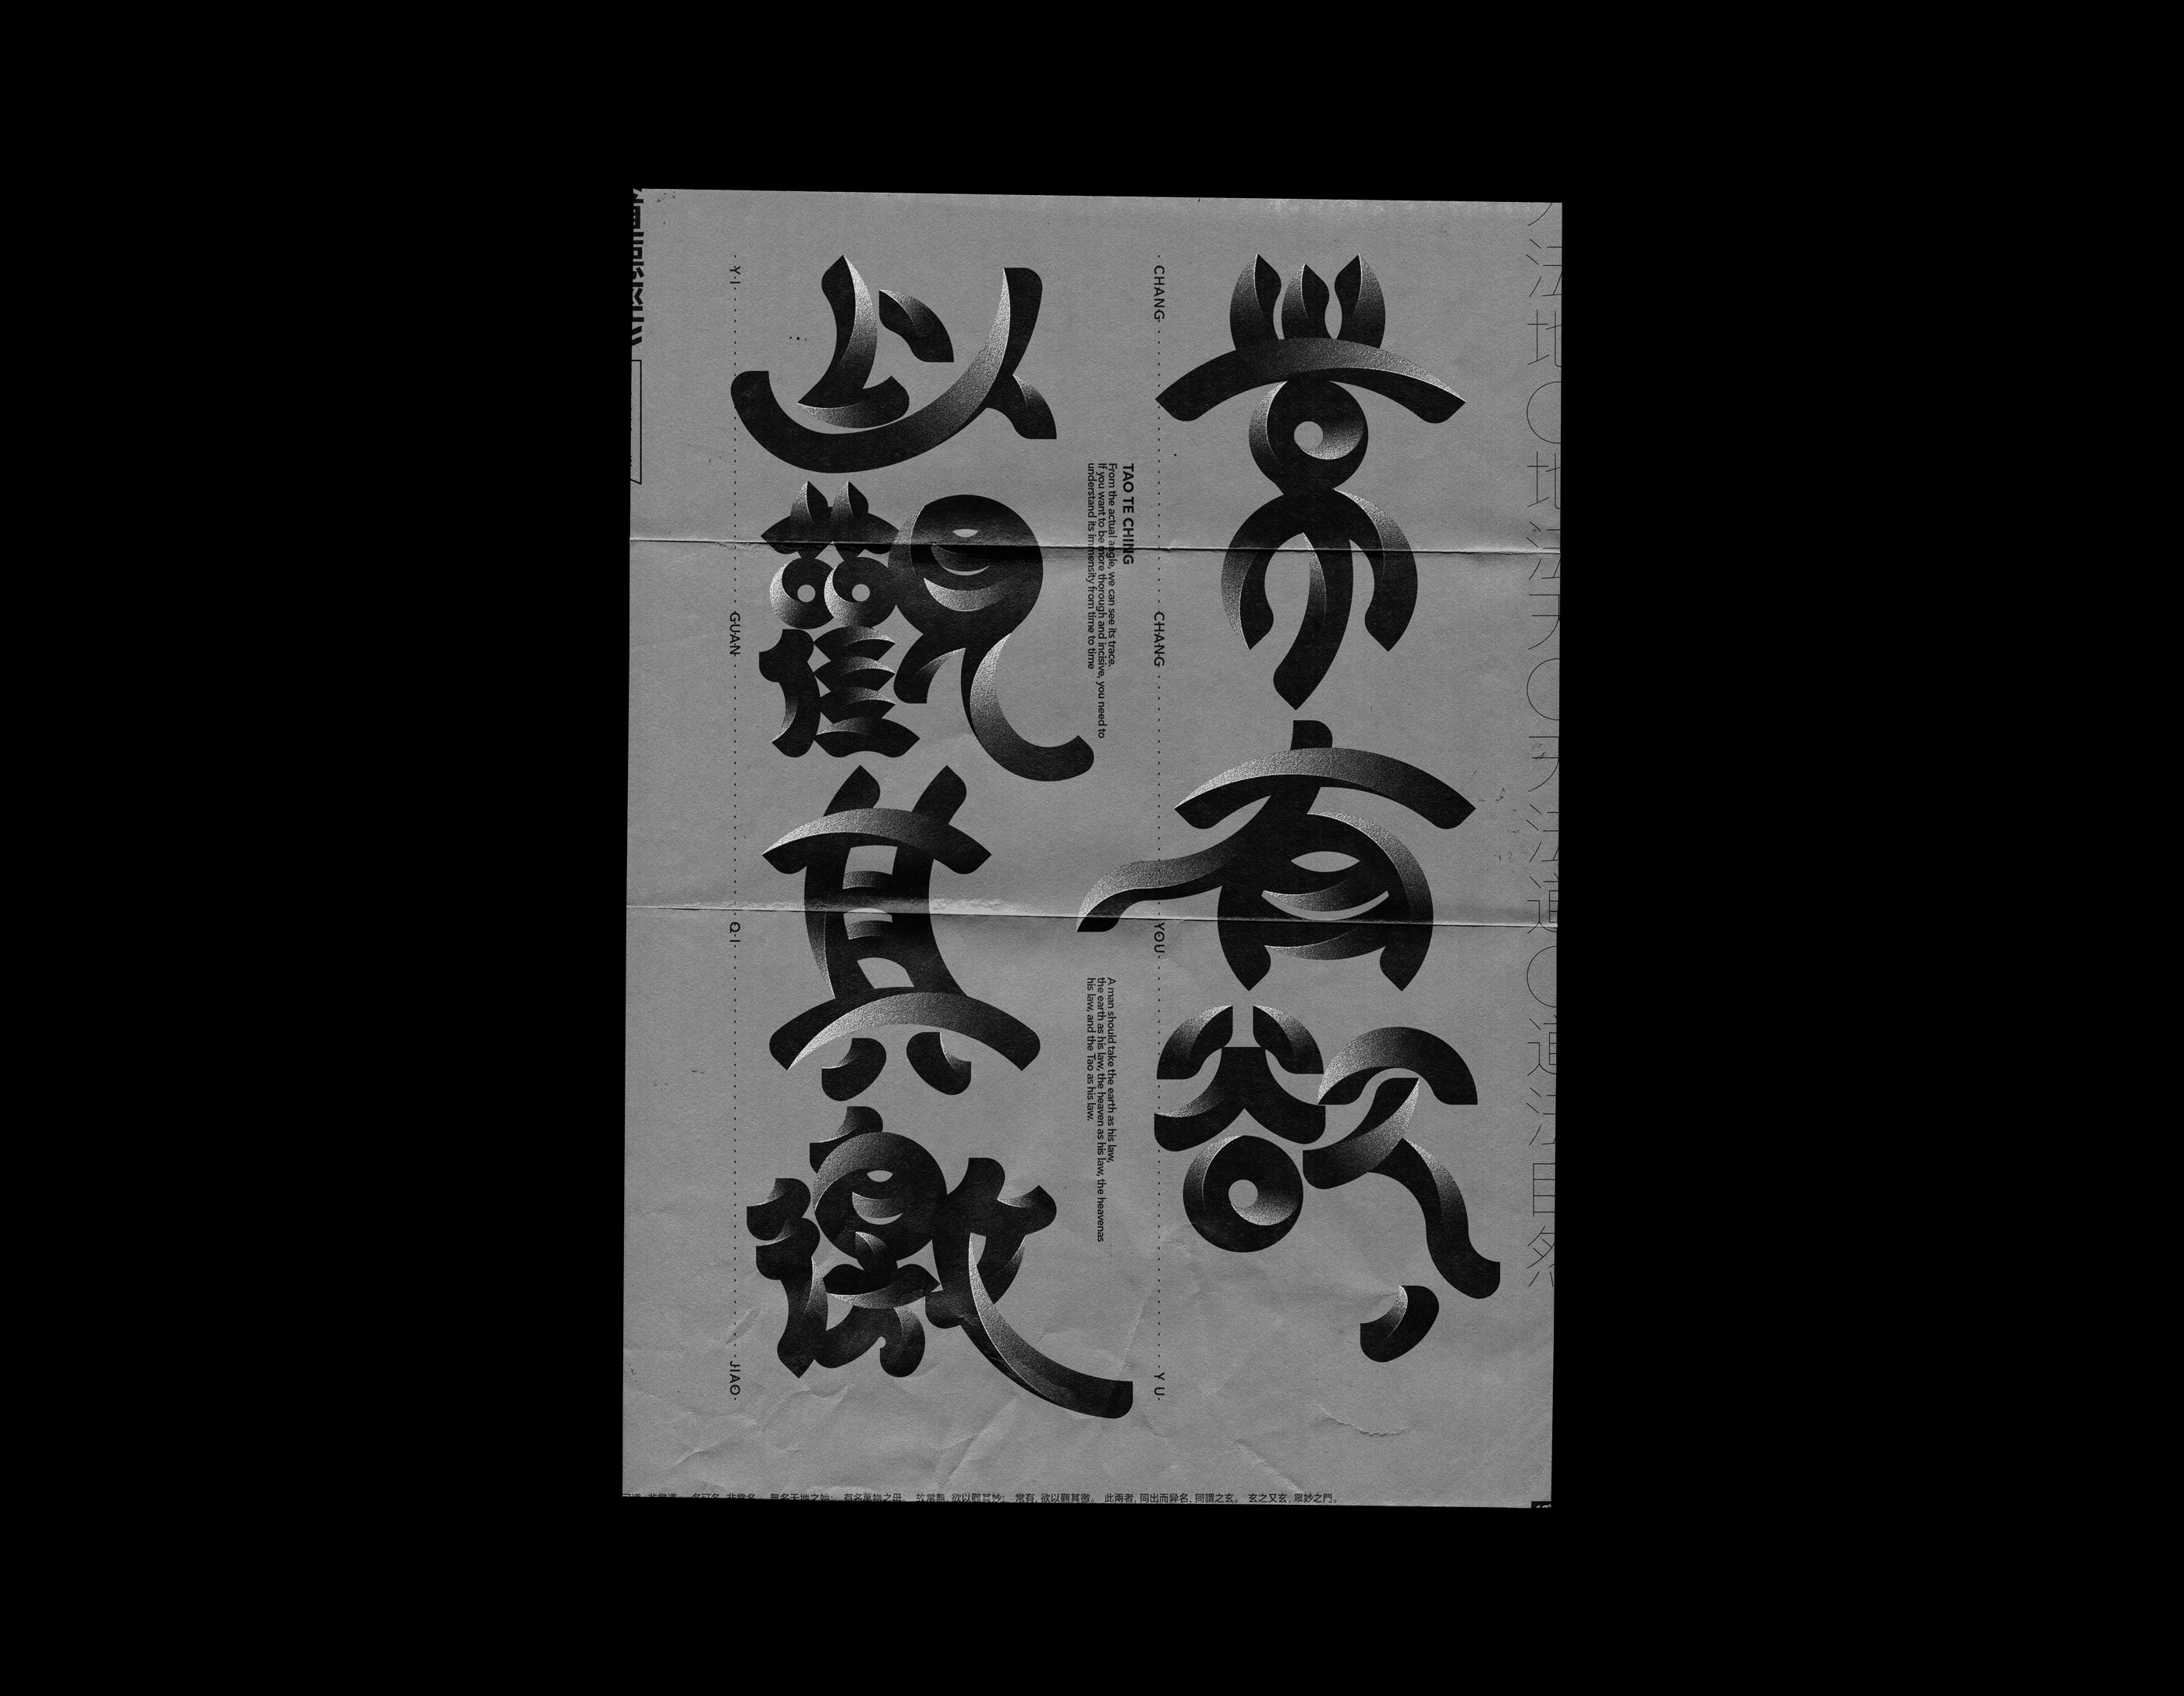 常有欲，
CHANG
CHANG
YOU
YU
TAO TE CHING
From the actual angle, we can see its trace.
If you want to be more thorough and incisive, you need to
understand its immensity from time to time
A man should take the earth as his law,
the earth as his law, the heaven as his law, the heavenas
his law, and the Tao as his law.
以觀其徼
YI
GUAN
QI
JIAO
非常道。 名可名, 非常名。 無名天地之始; 有名萬物之母。 故常無, 欲以觀其妙; 常有, 欲以觀其徼。 此兩者, 同出而异名, 同謂之玄。 玄之又玄, 眾妙之門。